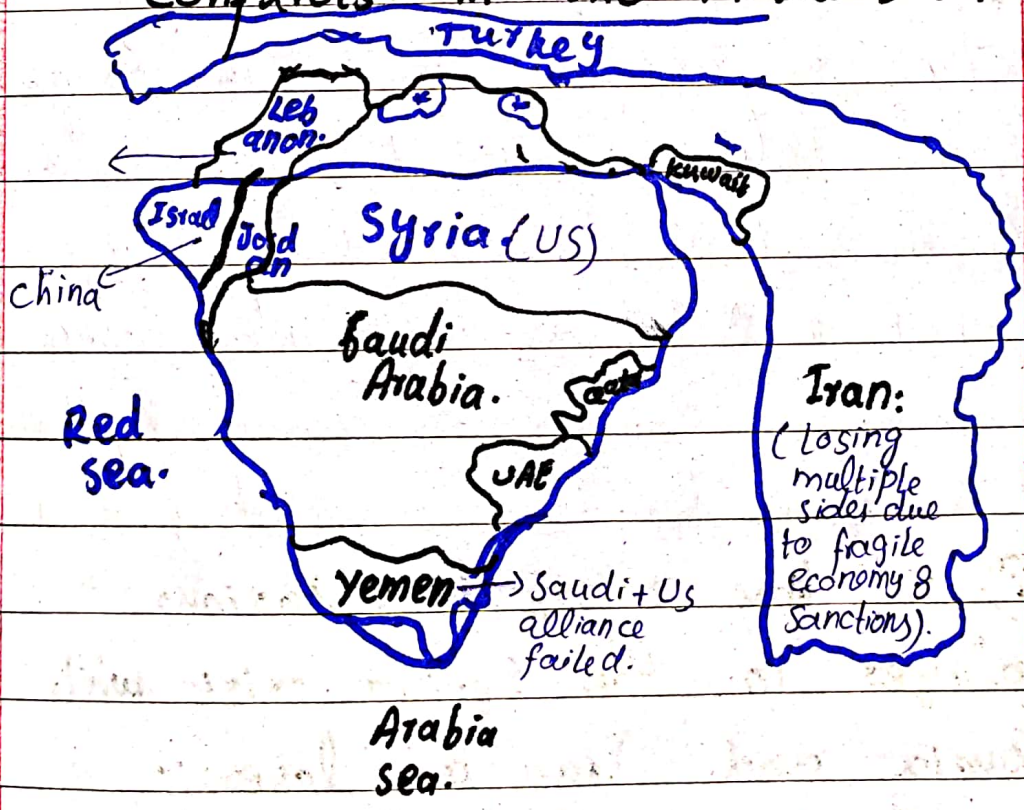 Turkey
Leb
anon.
Kuwait
Israel
Jord
an
Syria (US)
China
Saudi
Arabia.
Iran:
(Losing
multiple
sides due
to fragile
economy &
Sanctions).
Red
sea.
UAE
Yemen → Saudi + Us
alliance
failed.
Arabia
sea.